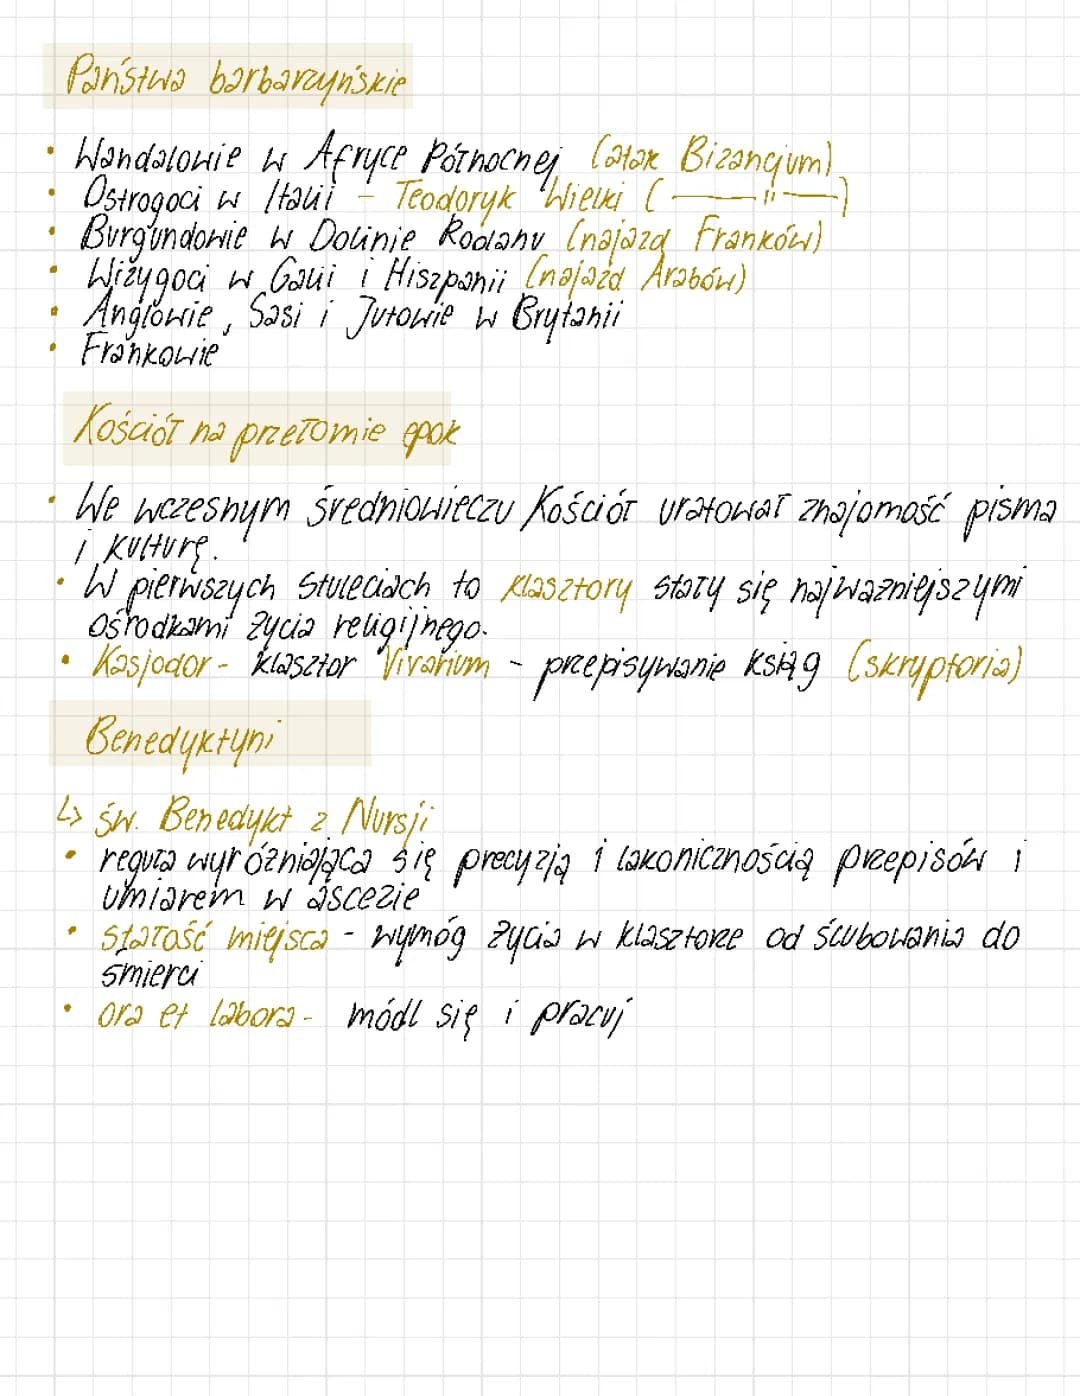 Państwa barbarzyńskie
• Wandalowie w Afryce Północnej (atak Bizancjum)
• Ostrogoci w Italii - Teodoryk Wielki ( —— 〃 —— )
• Burgundowie w Dolinie Rodanu (najazd Franków)
• Wizygoci w Galii i Hiszpanii (najazd Arabów)
• Anglowie, Sasi i Jutowie w Brytanii
• Frankowie
Kościół na przełomie epok
• We wczesnym średniowieczu Kościół uratował znajomość pisma
i kulturę.
• W pierwszych stuleciach to klasztory stały się najważniejszymi
ośrodkami życia religijnego.
• Kasjodor - klasztor Vivarium - przepisywanie ksiąg (skryptoria)
Benedyktyni
↳ św. Benedykt z Nursji
• reguła wyróżniająca się precyzją i lakonicznością przepisów i
umiarem w ascezie
• stałość miejsca - wymóg życia w klasztorze od ślubowania do
śmierci
• ora et labora - módl się i pracuj